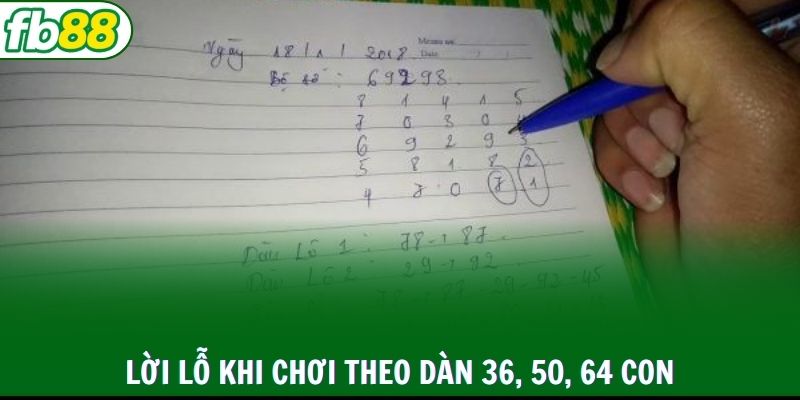 fb88
Ngày 18/1/2018
Bộ số: 69293
8 1 4 1 5
7 0 3 0 4
6 9 2 9 3
5 8 1 8 2
4 7 0 7 1
Dàn Lô 1: 78 → 87
Dàn Lô 2: 29 → 92
LỜI LỖ KHI CHƠI THEO DÀN 36, 50, 64 CON